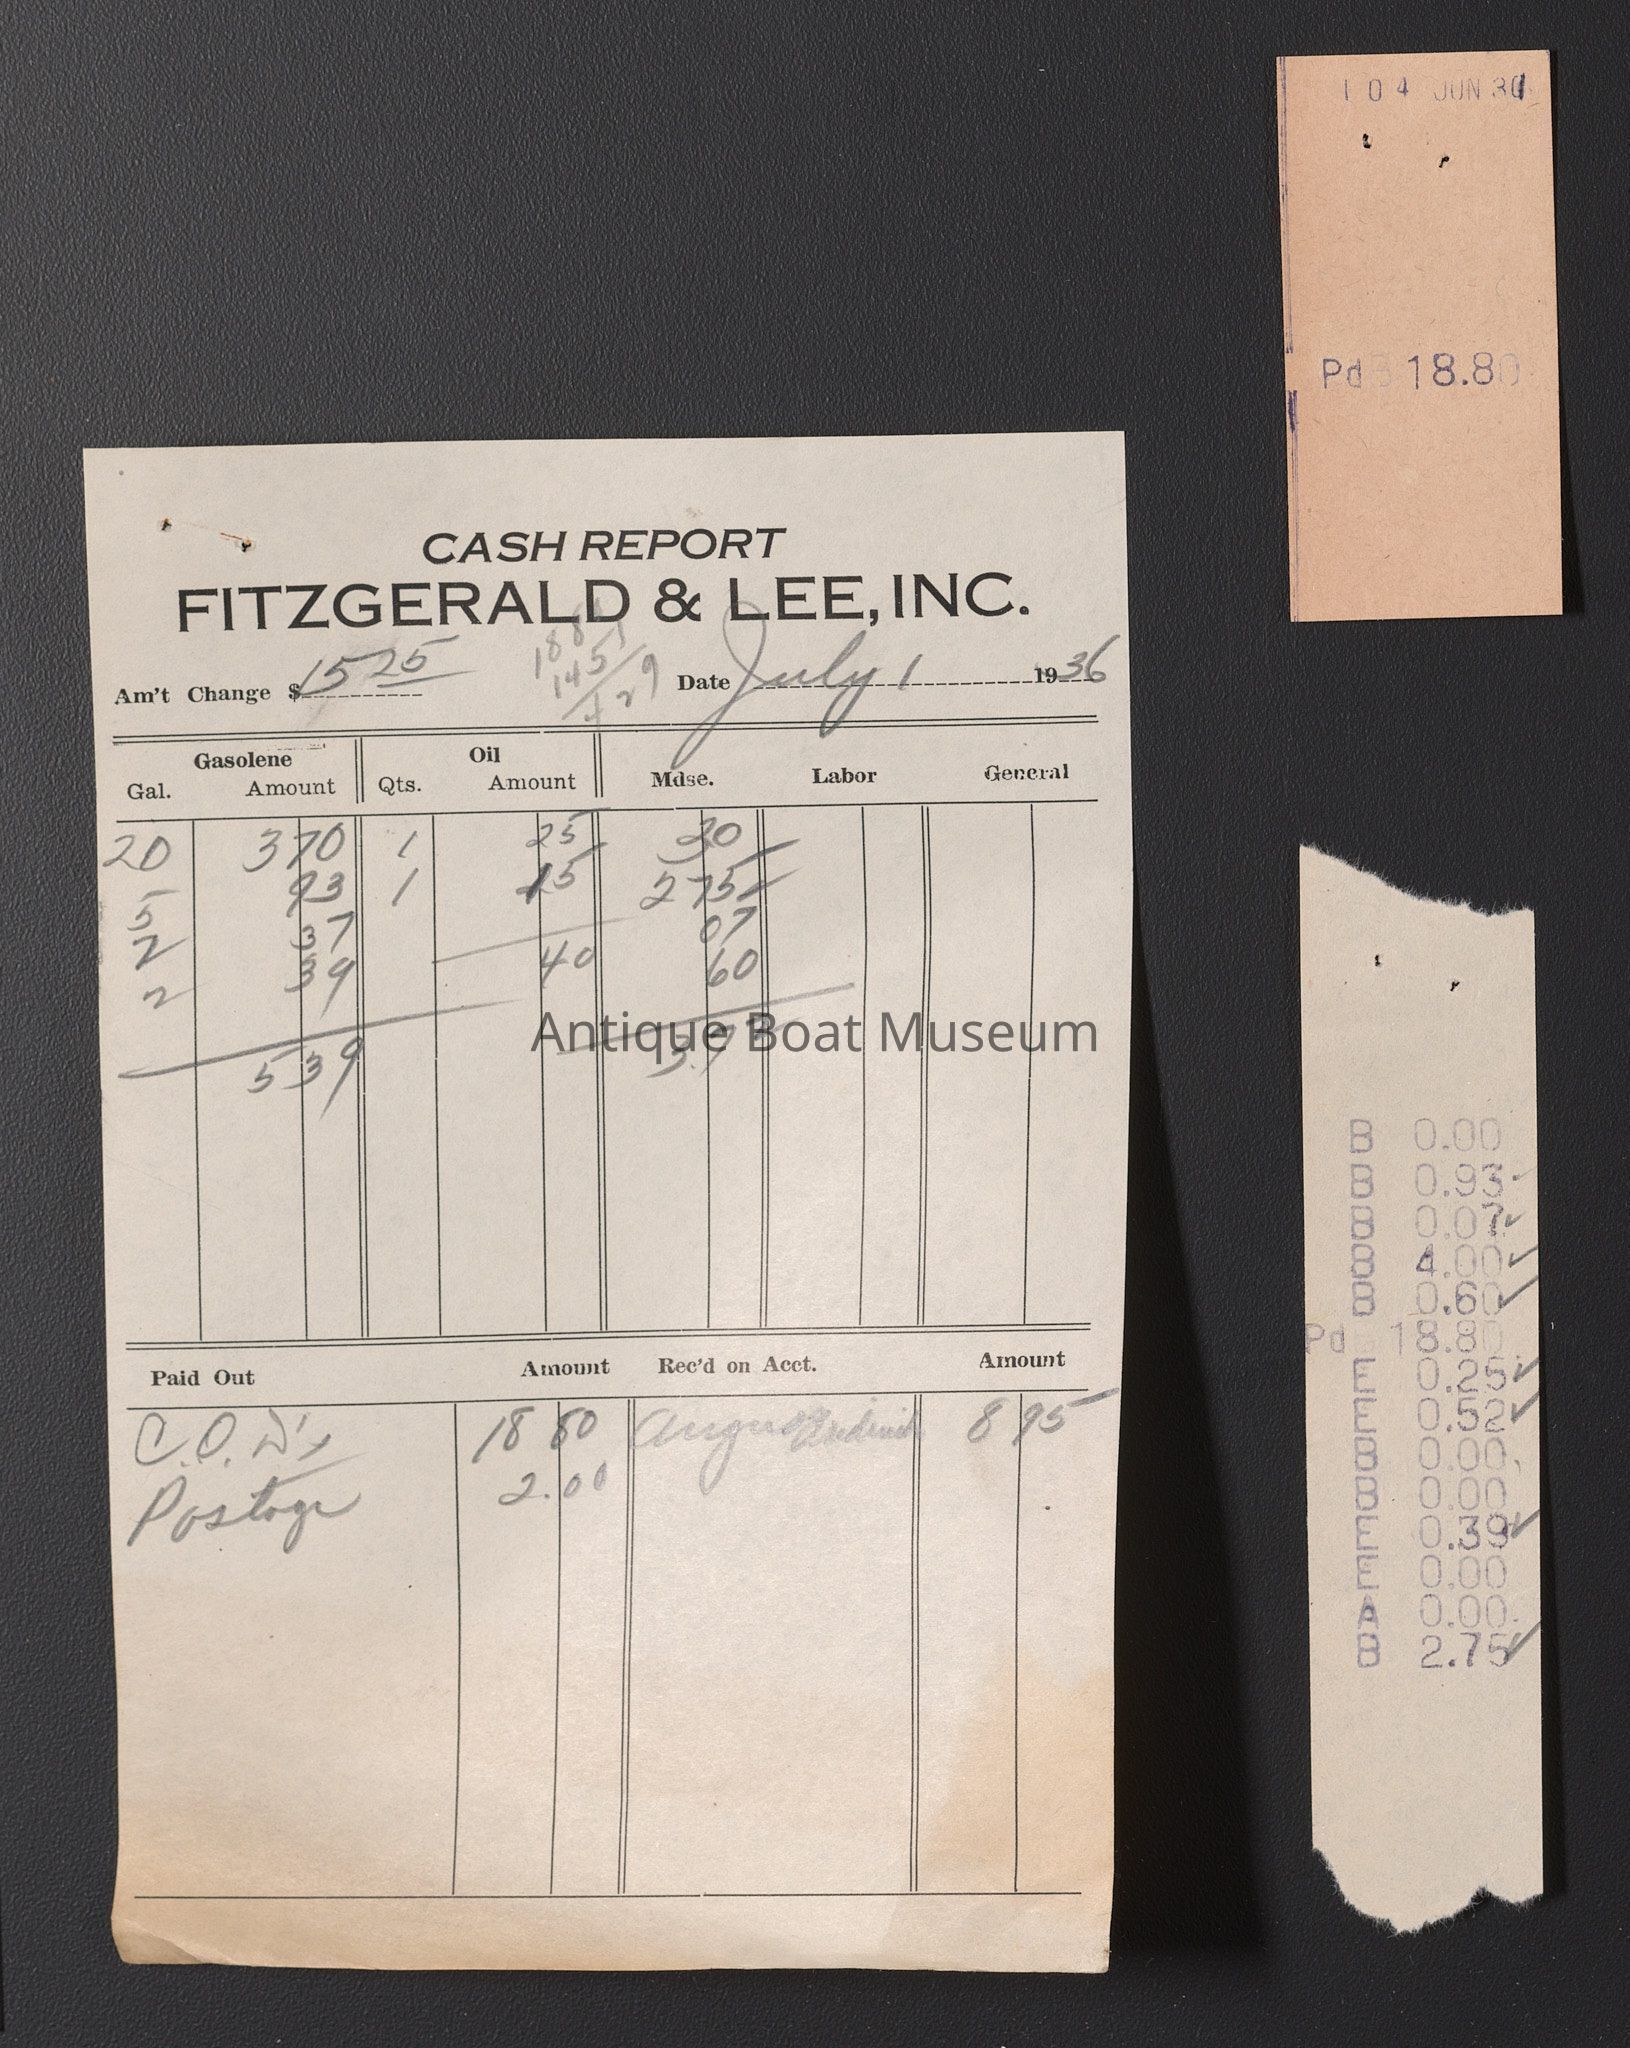 104 JUN 30
Pd 18.80
CASH REPORT
FITZGERALD & LEE, INC.
Am't Change $ 15 25
Date July 1 1936
Gasolene Oil
Gal. Amount Qts. Amount Mdse. Labor General
20 3 70 1 25 30
5 93 1 15 2 75
2 37 07
2 39 40 60
5 39
Antique Boat Museum
Paid Out Amount Rec'd on Acct. Amount
C.O.D's 18 80 8 95
Postage 2.00
B 0.00
B 0.93
B 0.07
B 4.00
B 0.60
Pd 18.80
E 0.25
E 0.52
B 0.00
B 0.00
E 0.39
E 0.00
A 0.00
B 2.75